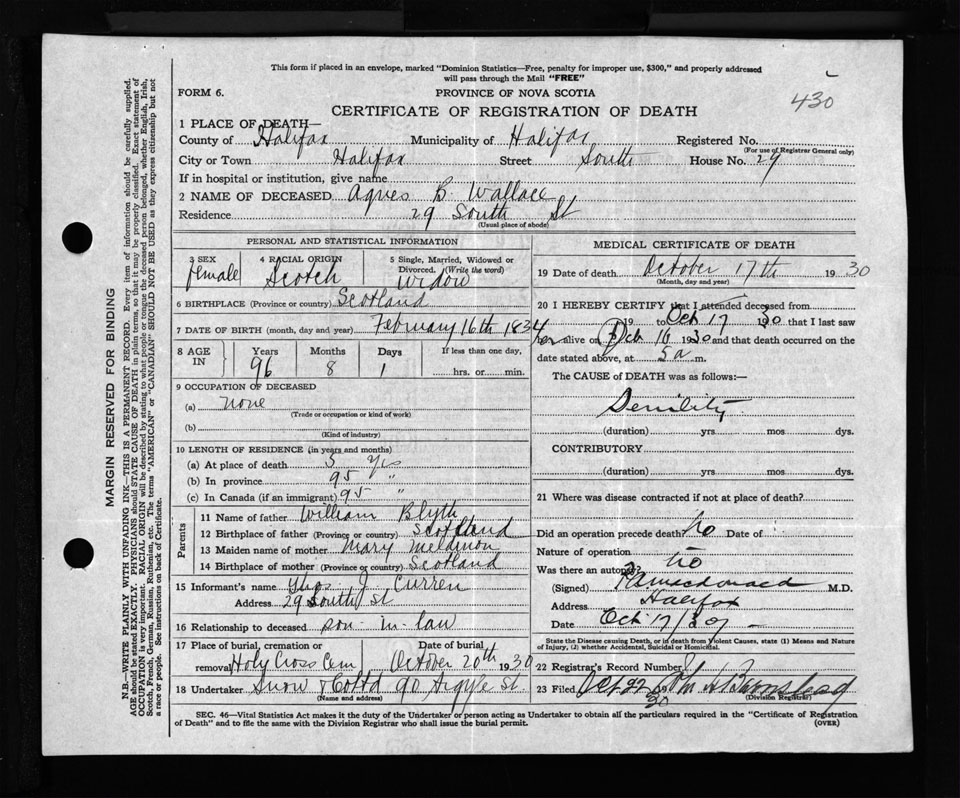 This form if placed in an envelope, marked "Dominion Statistics—Free, penalty for improper use, $300," and properly addressed
will pass through the Mail "FREE"
FORM 6.
PROVINCE OF NOVA SCOTIA
430
CERTIFICATE OF REGISTRATION OF DEATH
1 PLACE OF DEATH—
County of Halifax Municipality of Halifax Registered No.
(For use of Registrar General only)
City or Town Halifax Street South House No. 29
If in hospital or institution, give name
2 NAME OF DECEASED Agnes B. Wallace
Residence 29 South St
(Usual place of abode)
PERSONAL AND STATISTICAL INFORMATION
3 SEX 4 RACIAL ORIGIN 5 Single, Married, Widowed or
Divorced. (Write the word)
female Scotch Widow
6 BIRTHPLACE (Province or country) Scotland
7 DATE OF BIRTH (month, day and year) February 16th 1834
8 AGE IN Years Months Days If less than one day,
96 8 1 hrs. or min.
9 OCCUPATION OF DECEASED
(a) none
(Trade or occupation or kind of work)
(b)
(Kind of industry)
10 LENGTH OF RESIDENCE (in years and months)
(a) At place of death 5 Yrs
(b) In province 95 "
(c) In Canada (if an immigrant) 95 "
Parents
11 Name of father William Blyth
12 Birthplace of father (Province or country) Scotland
13 Maiden name of mother Mary
14 Birthplace of mother (Province or country) Scotland
15 Informant's name Thos. J. Curren
Address 29 South St
16 Relationship to deceased son-in-law
17 Place of burial, cremation or Date of burial
removal Holy Cross Cem October 20th 1930
18 Undertaker Snow & Co Ltd 90 Argyle St.
(Name and address)
MEDICAL CERTIFICATE OF DEATH
19 Date of death October 17th 1930
(Month, day and year)
20 I HEREBY CERTIFY that I attended deceased from
19 to Oct 17 1930 that I last saw
her alive on Oct 16 1930 and that death occurred on the
date stated above, at 5 a m.
The CAUSE OF DEATH was as follows:—
Senility
(duration) yrs mos dys.
CONTRIBUTORY
(duration) yrs mos dys.
21 Where was disease contracted if not at place of death?
Did an operation precede death? no Date of
Nature of operation
Was there an autopsy? no
(Signed) Macdonald M.D.
Address Halifax
Date Oct 17/30
State the Disease causing Death, or in death from Violent Causes, state (1) Means and Nature
of Injury, (2) whether Accidental, Suicidal or Homicidal.
22 Registrar's Record Number
23 Filed Oct 22 1930
(Division Registrar)
SEC. 46—Vital Statistics Act makes it the duty of the Undertaker or person acting as Undertaker to obtain all the particulars required in the "Certificate of Registration
of Death" and to file the same with the Division Registrar who shall issue the burial permit.
(OVER)
MARGIN RESERVED FOR BINDING
N.B.—WRITE PLAINLY WITH UNFADING INK—THIS IS A PERMANENT RECORD. Every item of information should be carefully supplied.
AGE should be stated EXACTLY. PHYSICIANS should STATE CAUSE OF DEATH in plain terms, so that it may be properly classified. Exact statement of
OCCUPATION is very important. RACIAL ORIGIN will be described by stating to what people or tongue the deceased person belonged, whether English, Irish,
Scotch, French, German, Russian, Ruthenian, etc. The terms "AMERICAN" or "CANADIAN" SHOULD NOT BE USED as they express citizenship but not
a race or people. See instructions on back of Certificate.